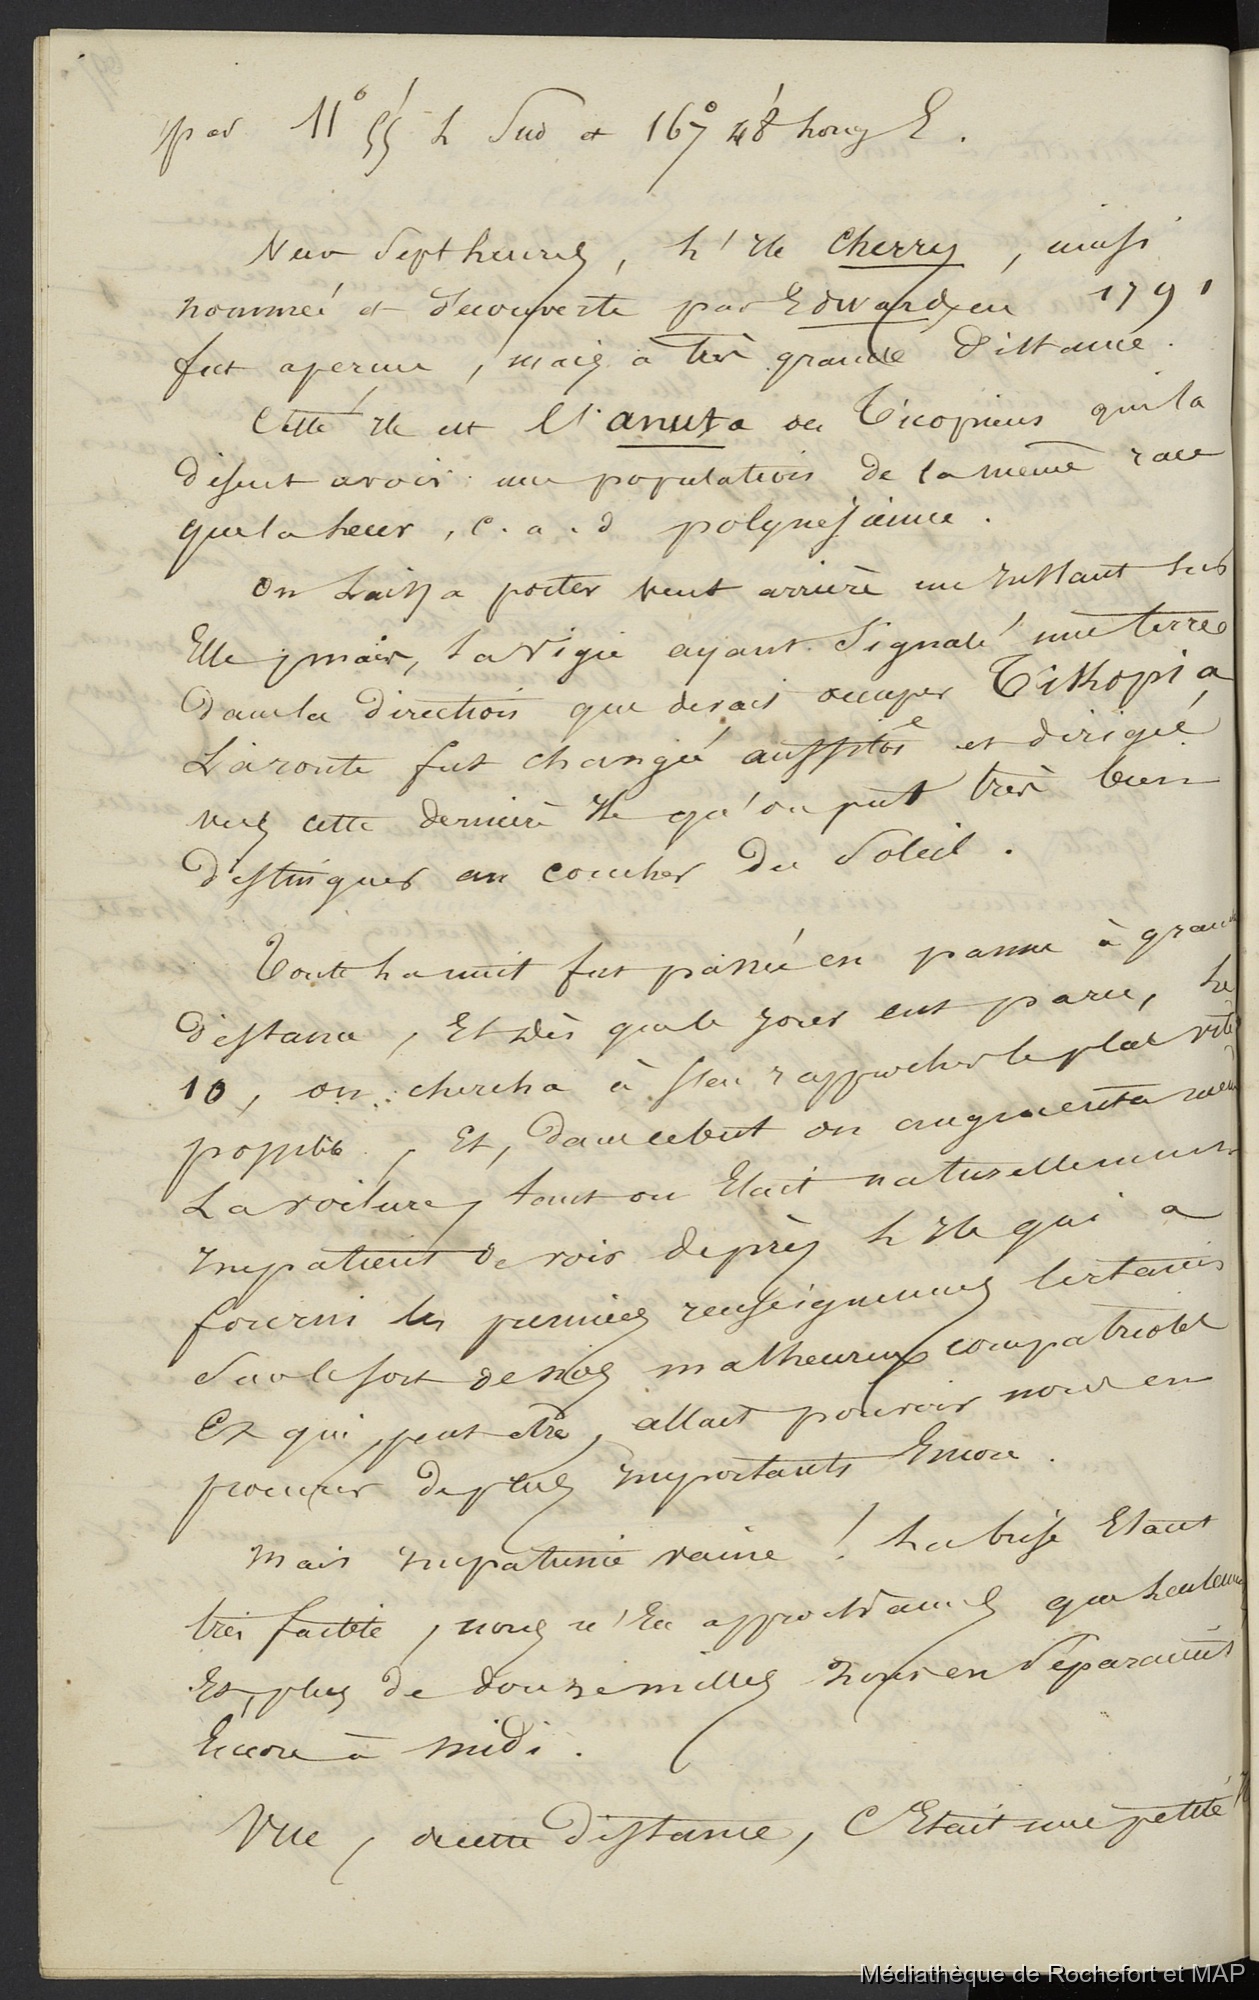 par 11° 55' L Sud et 167° 48' Long E.
Vers Sept heures, L'Ile Cherry, ainsi
nommée et découverte par Edwards en 1791
fut aperçue, mais à très grande distance.
Cette Ile est l'anuta des Ticopiens qui la
disent avoir une population de la même race
que la leur, c. a. d polynésienne.
On Laissa porter vent arrière un Instant sur
Elle ; mais, la Vigie ayant Signalé une terre
dans la direction que devait occuper Tikhopia
La route fut changée aussitôt et dirigée
vers cette dernière Ile qu'on put très bien
distinguer au coucher du Soleil.
Toute La nuit fut passée en panne à grande
distance, Et dès que le jour eut paru, Le
10, on chercha à s'en rapprocher le plus vite
possible, Et, dans ce but on augmenta
La voilure, tant on Etait naturellement
Impatient de voir de près L'Ile qui a
fourni les premiers renseignemens Certains
Sur le sort de nos malheureux compatriotes
Et qui, peut être, allait pouvoir nous en
procurer de plus Importants Encore.
Mais Impatience vaine ! La brise Etant
très faible, nous n'En approchames que Lentement
Et, plus de douze milles nous en Séparaient
Encore à midi.
Vue, de cette distance, C'Etait une petite
Médiathèque de Rochefort et MAP